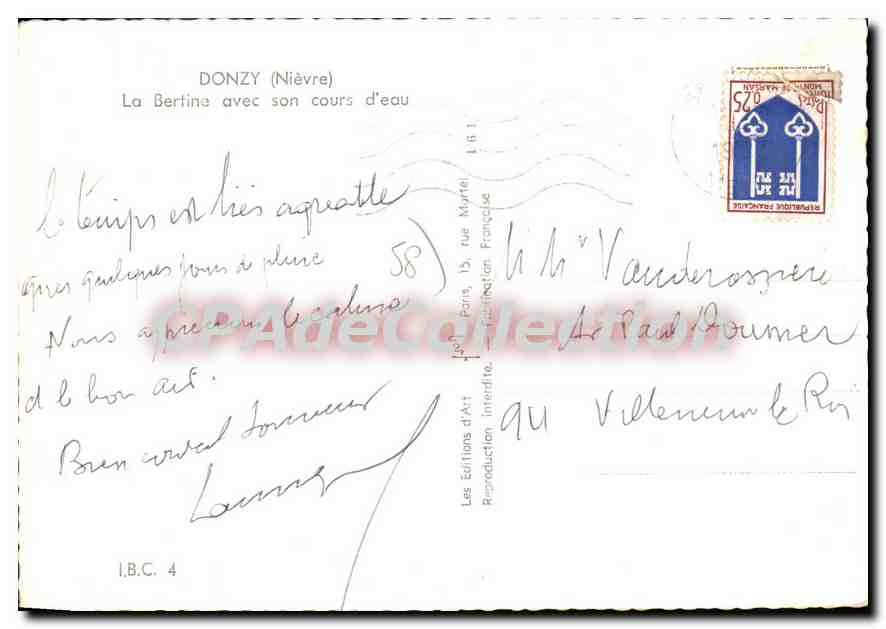 DONZY (Nièvre)
La Bertine avec son cours d'eau
Le temps est très agréable
après quelques jours de pluie
Nous apprécions le calme
et le bon air.
Bien cordial souvenir
58
I.B.C. 4
Les Editions d'Art "Yvon" Paris, 15, rue Martel 161
Reproduction interdite. - Fabrication Française
0,25
MONT-DE-MARSAN
REPUBLIQUE FRANÇAISE
Vanderosnière
Av Paul Doumer
94 Villeneuve le Roi
CPAdeCollection